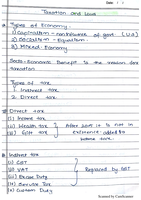 Taxation and Law
Types of Economy
1) Capitalism - contributes of govt (US)
2) Socialism - Equalism
3) Mixed Economy
Socio-Economic Benefit is the reason for
taxation
Types of tax
1. Indirect tax
2. Direct tax
Direct tax
(i) Income tax
(ii) Wealth tax
(iii) Gift tax
After 2017 it is not in
existence added to
Income tax.
Indirect tax
(i) GST
(ii) VAT
(iii) Excise Duty
(iv) Service Tax
(v) Custom Duty
Replaced by GST
Scanned by CamScanner